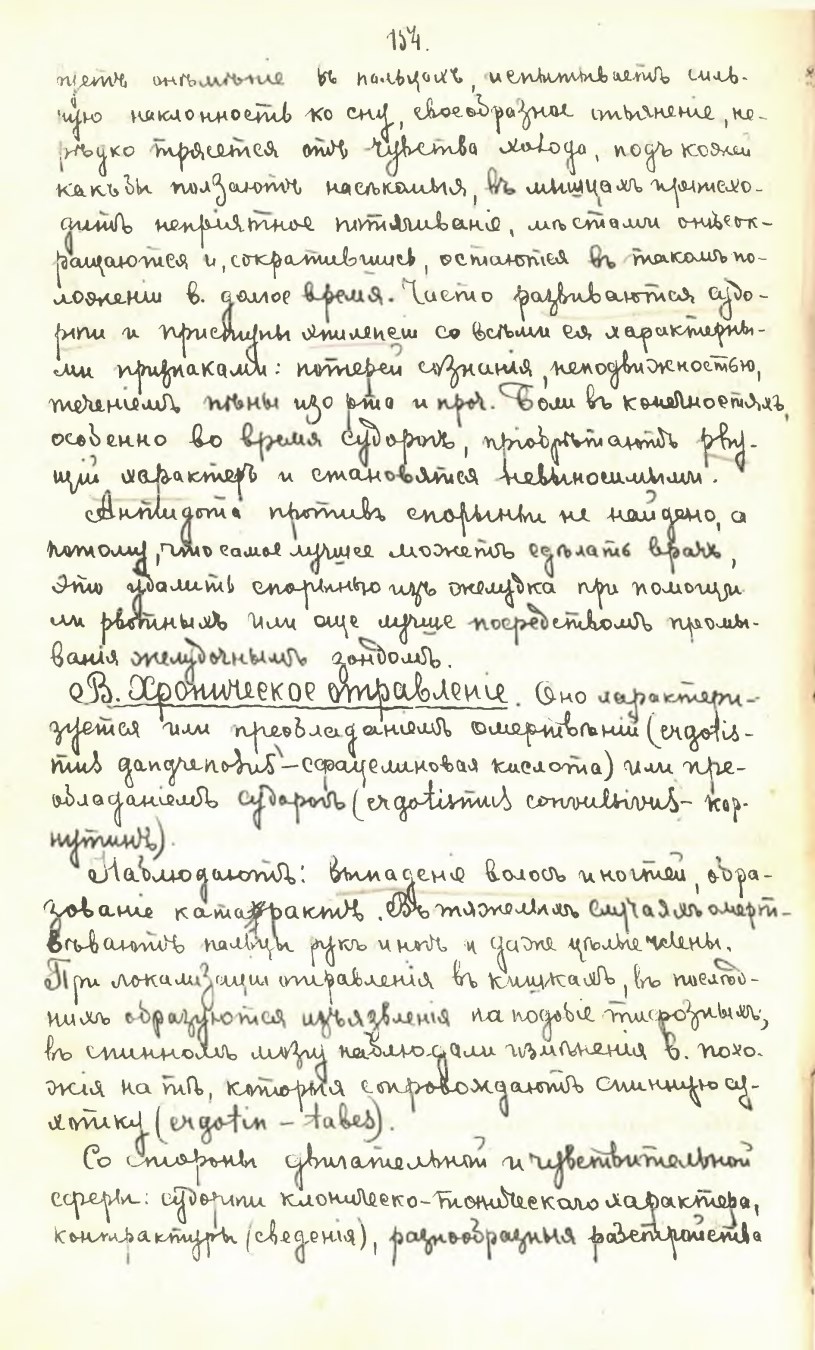 154.
ществъ онѣмѣніе въ пальцахъ, испытываетъ силь-
ную наклонность ко сну, своеобразное опьяненіе, не-
рѣдко трясется отъ чувства холода, подъ кожей
какъ бы ползаютъ насѣкомыя, въ мышцахъ происхо-
дитъ непріятное потягиваніе, мѣстами онѣ сок-
ращаются и, сократившись, остаются въ такомъ по-
ложеніи в. долгое время. Часто развиваются судо-
роги и приступы эпилепсіи со всѣми ея характерны-
ми признаками: потерей сознанія, неподвижностью,
теченіемъ пѣны изо рта и проч. Боли въ конечностяхъ,
особенно во время судорогъ, пріобрѣтаютъ рву-
щій характеръ и становятся невыносимыми.
Антидота противъ спорыньи не найдено, а
потому, что самое лучшее можетъ сдѣлать врачъ,
это удалить спорынью изъ желудка при помощи
ли рвотныхъ или еще лучше посредствомъ промы-
ванія желудочнымъ зондомъ.
В. Хроническое отравленіе. Оно характери-
зуется или преобладаніемъ омертвѣній (ergotis-
mus gangrenosus – сфацелиновая кислота) или пре-
обладаніемъ судорогъ (ergotismus convulsivus – кор-
нутинъ).
Наблюдаютъ: выпаденіе волосъ и ногтей, обра-
зованіе катарактъ. Въ тяжелыхъ случаяхъ омерт-
вѣваютъ пальцы рукъ и ногъ и даже цѣлые члены.
При локализаціи отравленія въ кишкахъ, въ послѣд-
нихъ образуются изъязвленія на подобіе тифозныхъ,
въ спинномъ мозгу наблюдали измѣненія в. похо-
жія на тѣ, которыя сопровождаютъ спинную су-
хотку (ergotin – tabes).
Со стороны двигательной и чувствительной
сферы: судороги клоническо-тоническаго характера,
контрактуры (сведенія), разнообразныя разстройства